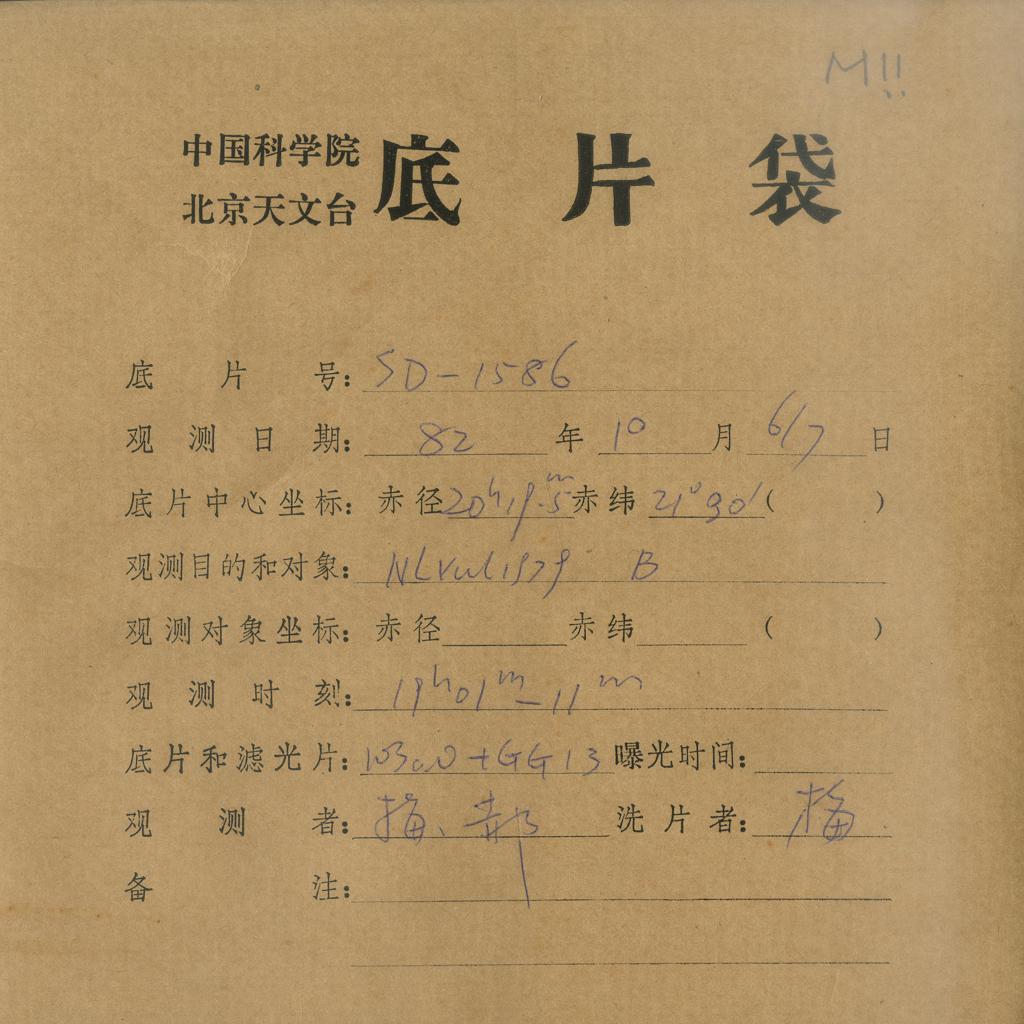 M!!
中国科学院
北京天文台 底片袋
底片号: SD-1586
观测日期: 82 年 10 月 6/7 日
底片中心坐标: 赤径 20ʰ19ᵐ.5 赤纬 21°30′ ( )
观测目的和对象: NLVul1979 B
观测对象坐标: 赤径 赤纬 ( )
观测时刻: 19ʰ01ᵐ-11ᵐ
底片和滤光片: 103aO+GG13 曝光时间:
观测者: 梅、郝 洗片者: 梅
备注: